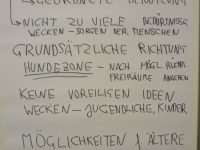 ↳ GEORDNETE BENUTZUNG
↳ NICHT ZU VIELE BEDÜRFNISSE
WECKEN - SORGEN DER MENSCHEN
GRUNDSÄTZLICHE RICHTUNG
HUNDEZONE - NACH MÖGL.
FREIRÄUME
KEINE VOREILIGEN IDEEN
WECKEN - JUGENDLICHE, KINDER
MÖGLICHKEITEN f. ÄLTERE